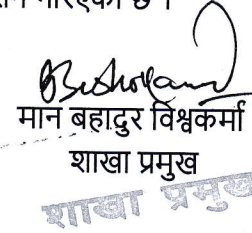 मान बहादुर विश्वकर्मा
शाखा प्रमुख
शाखा प्रमुख